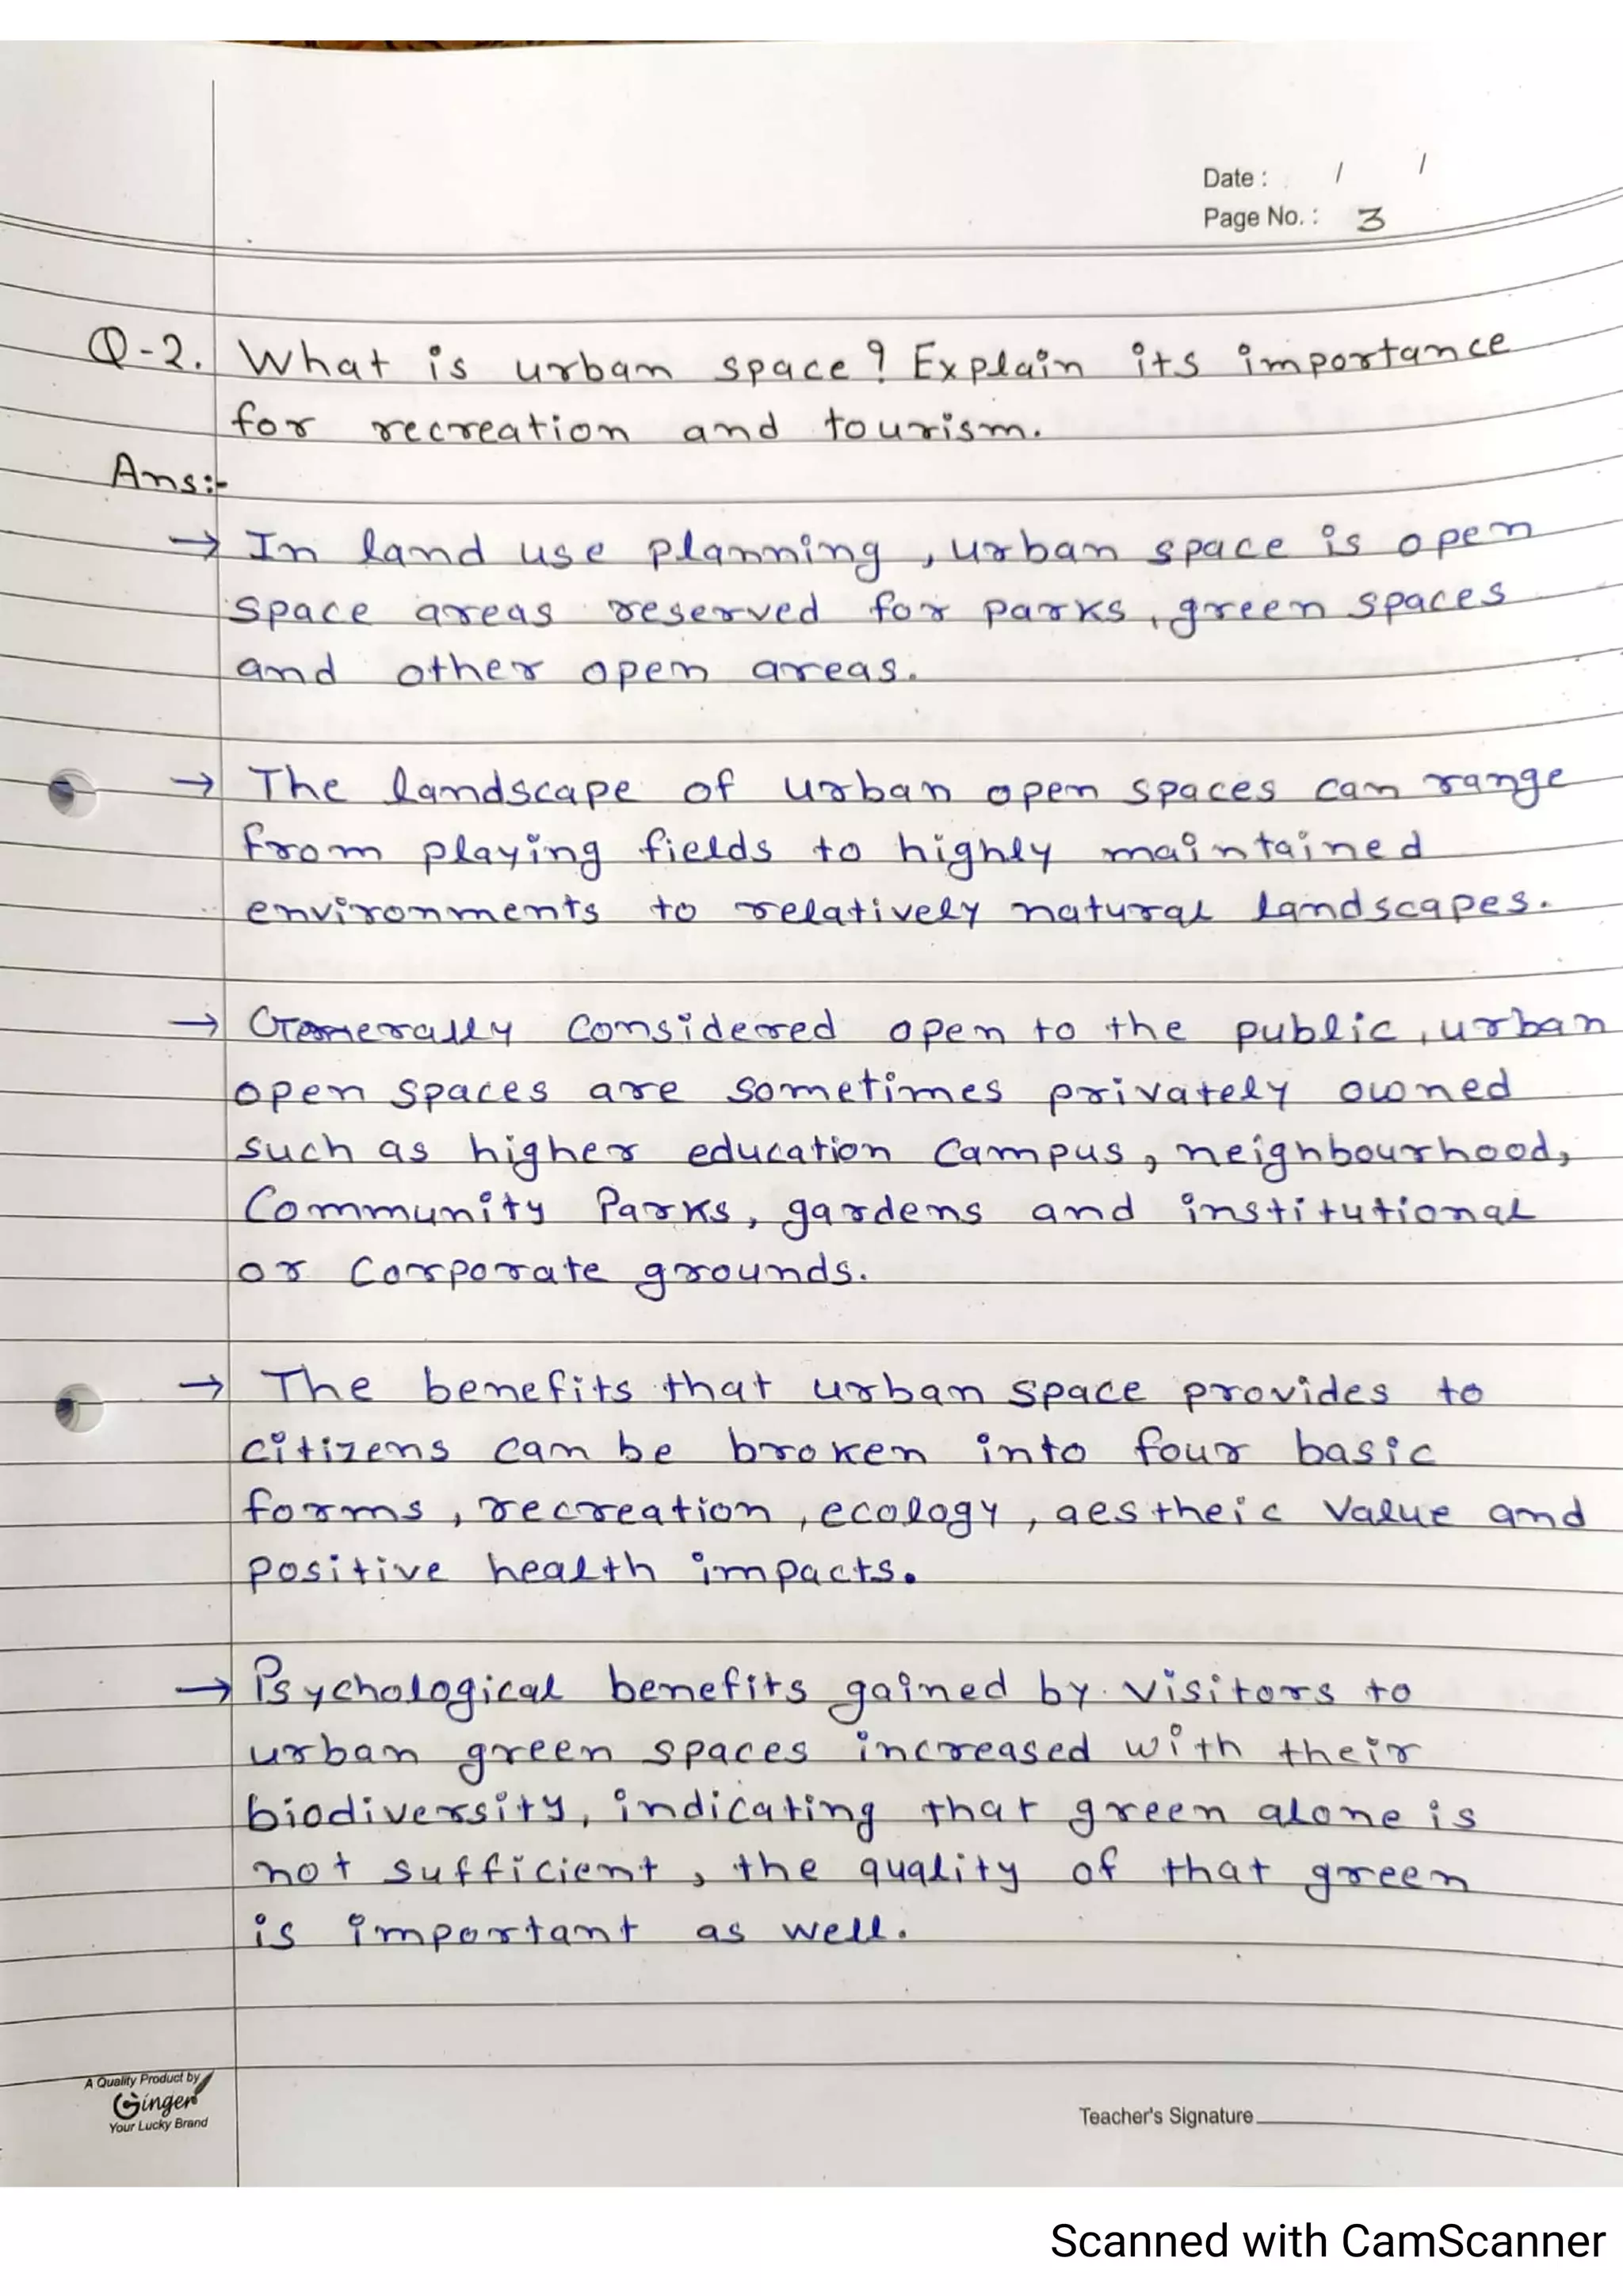 Date : / /
Page No. : 3
Q-2. What is urban space? Explain its importance
for recreation and tourism.
Ans:-
→ In land use planning, urban space is open
space areas reserved for parks, green spaces
and other open areas.
→ The landscape of urban open spaces can range
from playing fields to highly maintained
environments to relatively natural landscapes.
→ Generally considered open to the public, urban
open spaces are sometimes privately owned
such as higher education campus, neighbourhood,
Community Parks, gardens and institutional
or Corporate grounds.
→ The benefits that urban space provides to
citizens can be broken into four basic
forms, recreation, ecology, aestheic value and
positive health impacts.
→ Psychological benefits gained by visitors to
urban green spaces increased with their
biodiversity, indicating that green alone is
not sufficient, the quality of that green
is important as well.
A Quality Product by
Ginger
Your Lucky Brand
Teacher's Signature
Scanned with CamScanner